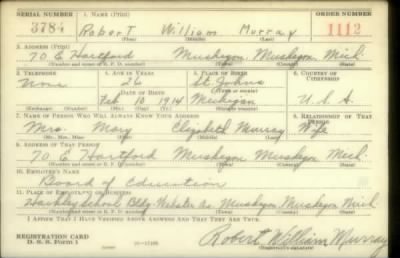 SERIAL NUMBER 1. NAME (Print) ORDER NUMBER
3784 Robert William Murray 1112
(First) (Middle) (Last)
2. ADDRESS (Print)
70 E Hartford Muskegon, Muskegon, Mich
(Number and street or R. F. D. number) (Town) (County) (State)
3. TELEPHONE 4. AGE IN YEARS 5. PLACE OF BIRTH 6. COUNTRY OF CITIZENSHIP
None 26 St. Johns
DATE OF BIRTH (Town or county)
Feb 10 1914 Michigan U.S.A.
(Exchange) (Number) (Mo.) (Day) (Yr.) (State or country)
7. NAME OF PERSON WHO WILL ALWAYS KNOW YOUR ADDRESS 8. RELATIONSHIP OF THAT PERSON
Mrs. Mary Elizabeth Murray Wife
(Mr., Mrs., Miss) (First) (Middle) (Last)
9. ADDRESS OF THAT PERSON
70 E Hartford Muskegon Muskegon Mich.
(Number and street or R. F. D. number) (Town) (County) (State)
10. EMPLOYER'S NAME
Board of Education
11. PLACE OF EMPLOYMENT OR BUSINESS
Hackley School Bldg. Webster Av. Muskegon Muskegon Mich
(Number and street or R. F. D. number) (Town) (County) (State)
I AFFIRM THAT I HAVE VERIFIED ABOVE ANSWERS AND THAT THEY ARE TRUE.
REGISTRATION CARD
D. S. S. Form 1 Robert William Murray
(Registrant's signature)